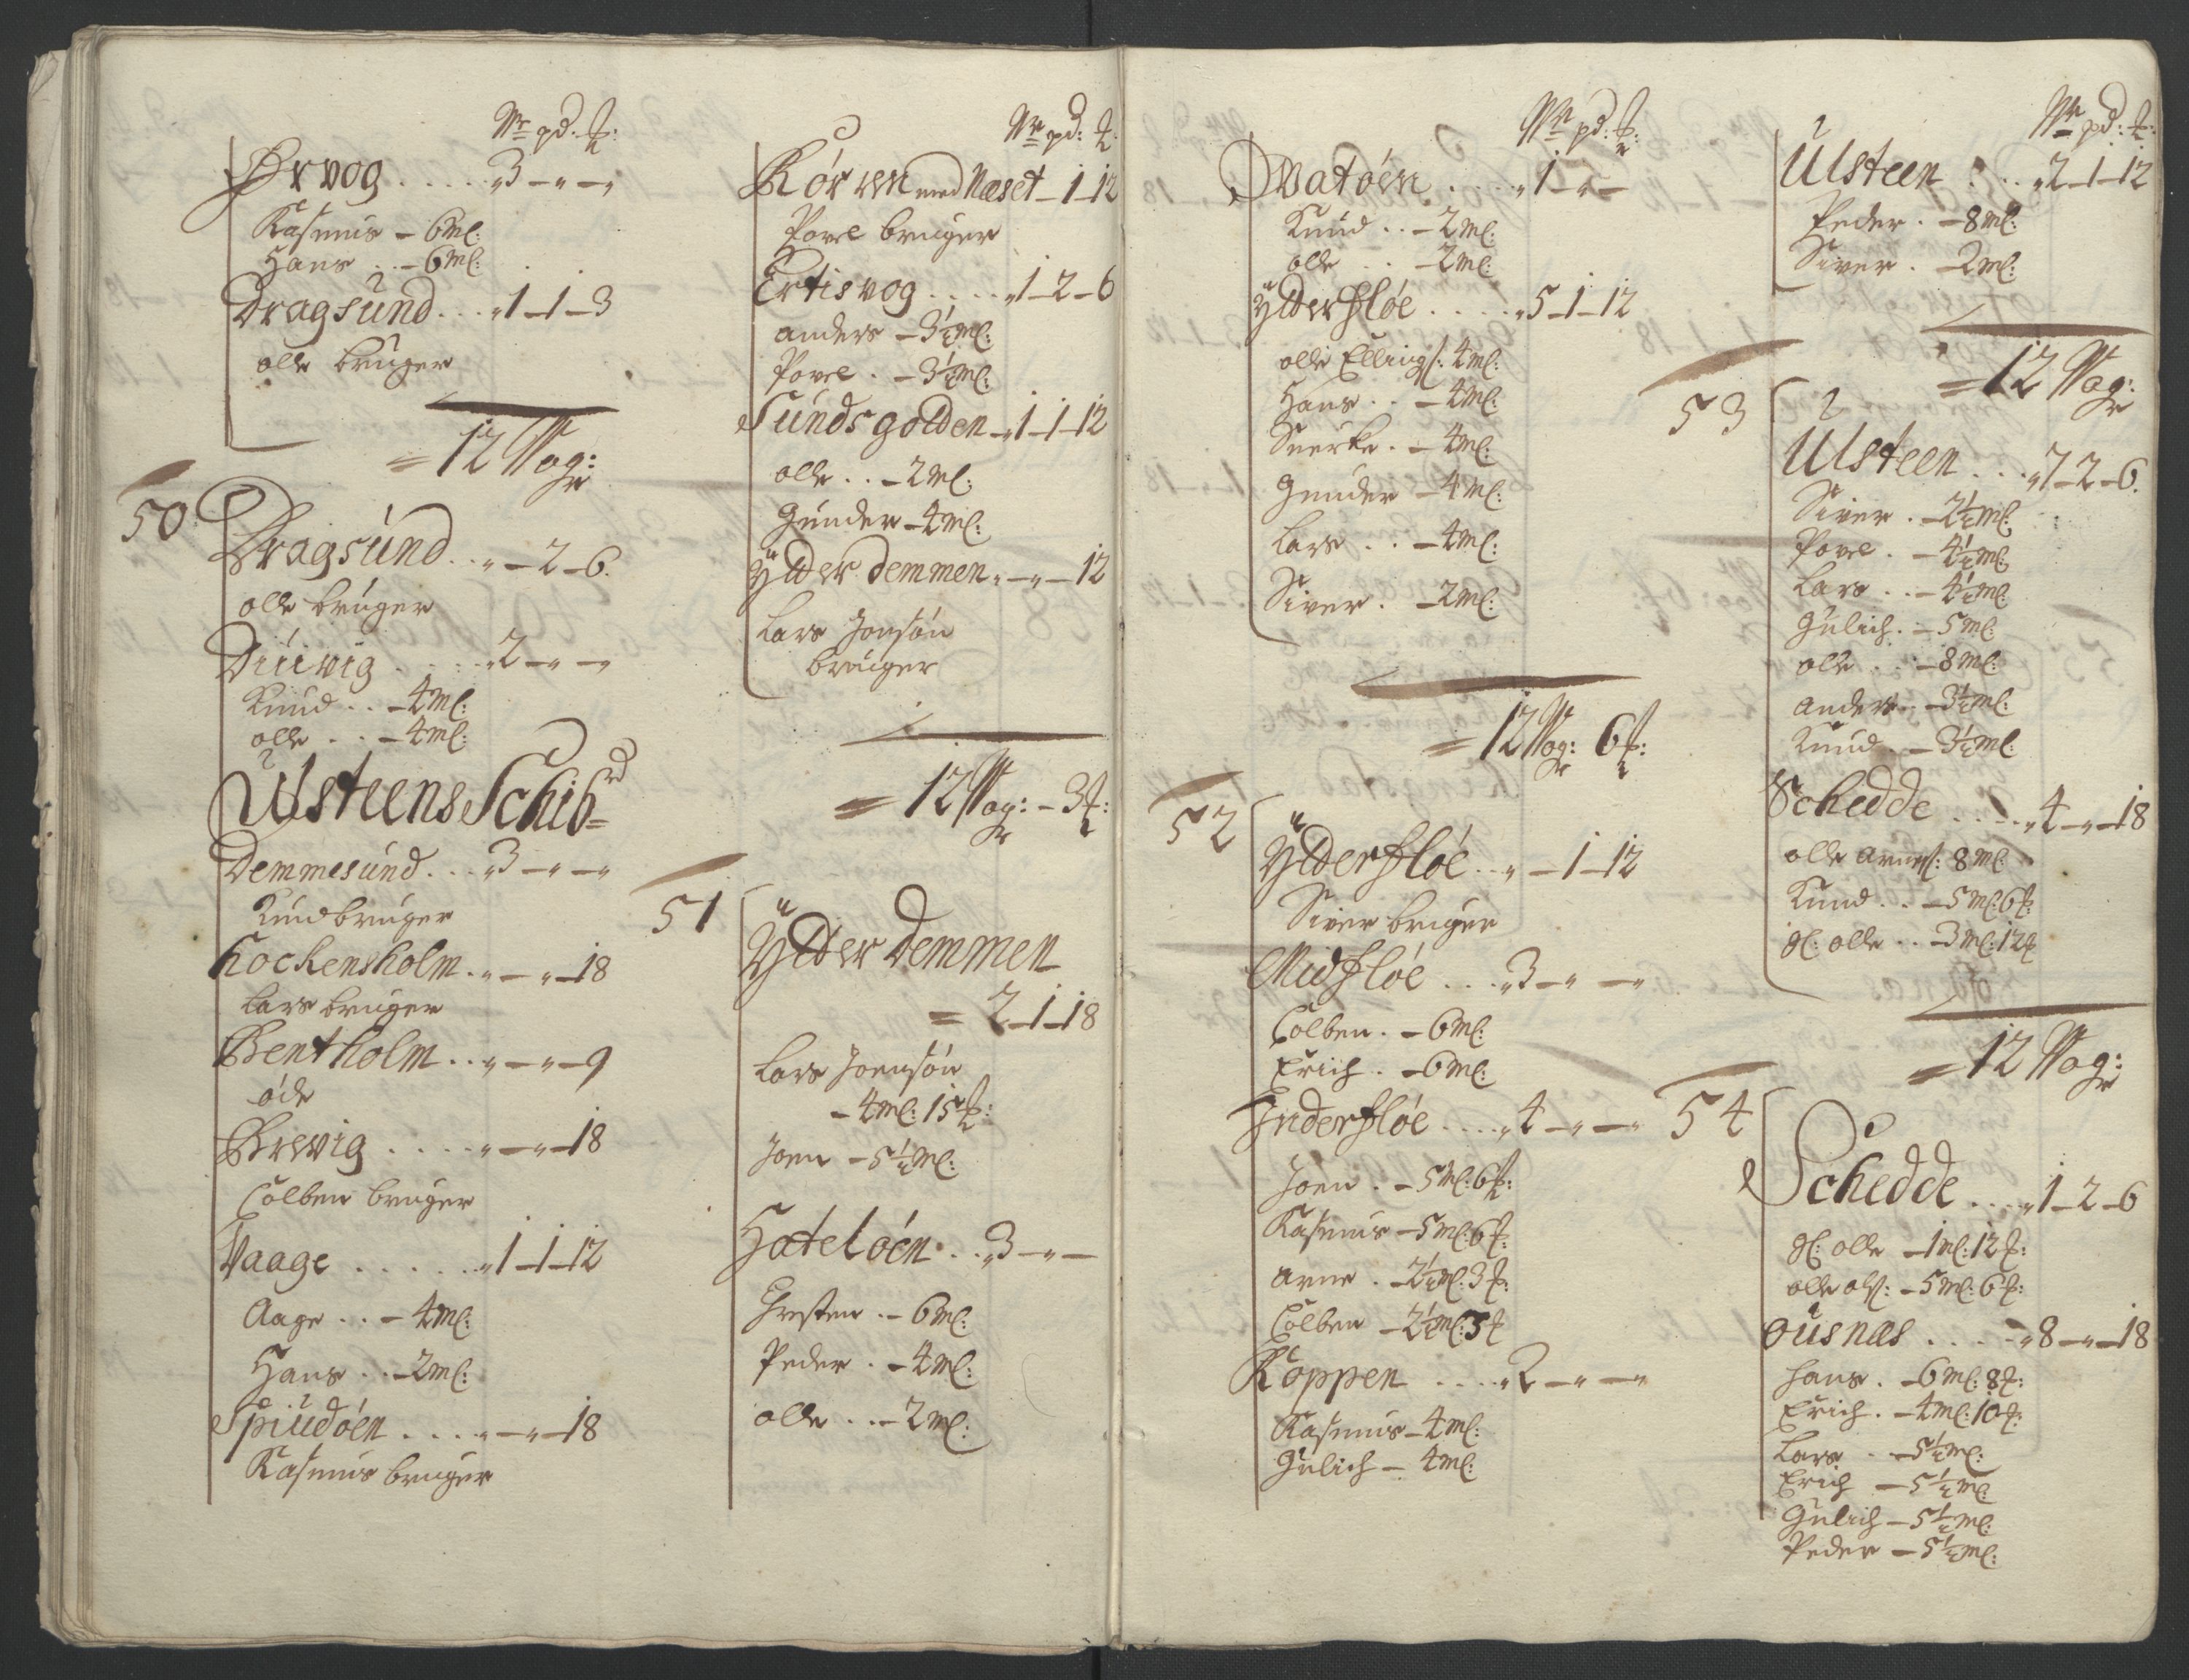 Wr pd: ʉ:
Ørvog . . . . . „3 – „ – „
Rasmus – 6ml:
Hans . . – 6ml:
Dragsund . . . „1–1–3
olle bruger
= 12 Wog:
50
Dragsund . . „ – 2 – 6.
olle bruger
Diuvig . . . . „2 – „ – „
Knud . . – 4ml:
olle . . – 4ml:
Ulsteens Schibrd
Demmesund . . . „3 – „ – „
Knud bruger
Kockensholm . „ – „ – 18
Lars bruger
Bentholm . . „ – „ – 9
öde
Brevig . . . . „ – „ – 18
Colben bruger
Vaage . . . . . „1–1–12
Aage . . – 4ml:
Hans . . – 2ml:
Spiudöen . . . . „ – „ – 18
Rasmus bruger
Wr pd: ʉ:
Rörven med Næset – 1–12
Povel bruger
Ertisvog . . . . „1–2–6
anders – 3½ml:
Povel . – 3½ml:
Sundsgolden – „1–1–12
olle . . – 2ml:
Gunder – 4ml:
Ytter demmen „ – „ – 12
Lars Jonsön
bruger
= 12 Wog: – 3ʉ:
51
Ytter demmen
= 2–1–18
Lars Joensön
– 4ml: 15ʉ:
Joen – 5½ml:
Hatelöen . . „3 – „ –
Christen . – 6ml:
Peder . – 4ml:
olle . . – 2ml:
Wr pd: ʉ:
Svatöen . . . . „1 – „ –
Knud . . – 2ml:
olle . . – 2ml:
Ytterflöe . . . . „5–1–12
olle Ellings: 4ml:
Hans . . – 4ml:
Snerke . – 4ml:
Gunder – 4ml:
Lars . . – 4ml:
Siver . – 2ml:
= 12 Wog: 6ʉ:
52
Ytterflöe . . „ – 1–12
Siver bruger
Midflöe . . . „3 – „ – „
Colben . – 6ml:
Erich . – 6ml:
Inderflöe . . . . „4 – „ – „
Joen . – 5ml: 6ʉ:
Rasmus – 5ml: 6ʉ:
Arne . – 2½ml: 3ʉ:
Colben – 2½ml: 3ʉ
Röppen . . . . „2 – „ – „
Rasmus – 4ml:
Gulich – 4ml:
Wr pd: ʉ:
Ulsteen . . . „2–1–12
Peder . – 8ml:
Siver . – 2ml:
= 12 Wog:
53
Ulsteen . . . „7–2–6.
Siver . – 2½ml:
Povel . – 4½ml:
Lars . . – 4½ml:
Gulich . – 5ml:
olle . . – 8ml:
Anders . – 3½ml:
Knud . – 3½ml:
Schedde . . . . „4 – „ – 18
olle arnes: 8ml:
Knud . . – 5ml: 6ʉ:
gl: olle . . – 3ml: 12ʉ
= 12 Wog:
54
Schedde . . . . „1–2–6
gl: olle – 1ml: 12ʉ:
olle ols: – 5ml: 6ʉ:
ousnæs . . . . „8 – „ – 18
Hans . – 6ml: 8ʉ:
Erich . – 4ml: 10ʉ:
Lars . . – 5½ml:
Erich – 5½ml:
Gulich – 5½ml:
Peder – 5½ml: